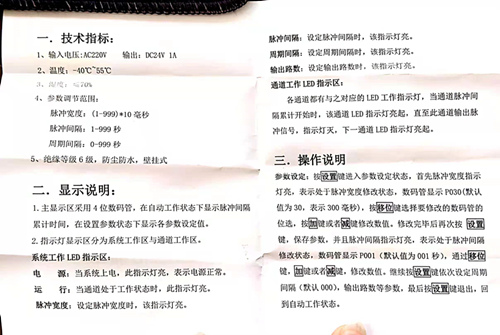 一．技术指标：
1、输入电压:AC220V 输出：DC24V 1A
2、温度：-40℃~55℃
3、湿度：≤70%
4、参数调节范围：
脉冲宽度：(1-999)*10 毫秒
脉冲间隔：1-999 秒
周期间隔：0-999 秒
5、绝缘等级 6 级，防尘防水，壁挂式
二．显示说明：
1.主显示区采用 4 位数码管，在自动工作状态下显示脉冲间隔
累计时间，在设置参数状态下显示各参数设定值。
2.指示灯显示区分为系统工作区与通道工作区。
系统工作 LED 指示区：
电 源：当系统上电，此指示灯亮，表示电源正常。
运 行：当通道处于工作状态时，此指示灯亮。
脉冲宽度：设定脉冲宽度时，该指示灯亮。
脉冲间隔：设定脉冲间隔时，该指示灯亮。
周期间隔：设定周期间隔时，该指示灯亮。
输出路数：设定输出路数时，该指示灯亮。
通道工作 LED 指示区：
各通道都有与之对应的 LED 工作指示灯，当通道脉冲间
隔累计开始时，该通道 LED 指示灯亮起，直至此通道输出脉
冲信号，指示灯灭，下一通道 LED 指示灯亮起。
三．操作说明
参数设定：按设置键进入参数设定状态，首先脉冲宽度指示
灯亮，表示处于脉冲宽度修改状态，数码管显示 P030(默认
值为 30，表示 300 毫秒)。按移位键选择要修改的数码管的
位选，按加键或者减键修改数值。修改完毕后再次按设置
键，保存参数，并且脉冲间隔指示灯亮，表示处于脉冲间隔
修改状态，数码管显示 P001（默认值为 001 秒），通过移位
键，加键或者减键，修改数值。继续按设置键依次设定周期
间隔（默认 000）、输出路数等参数，最后按设置键退出，回
到自动工作状态。